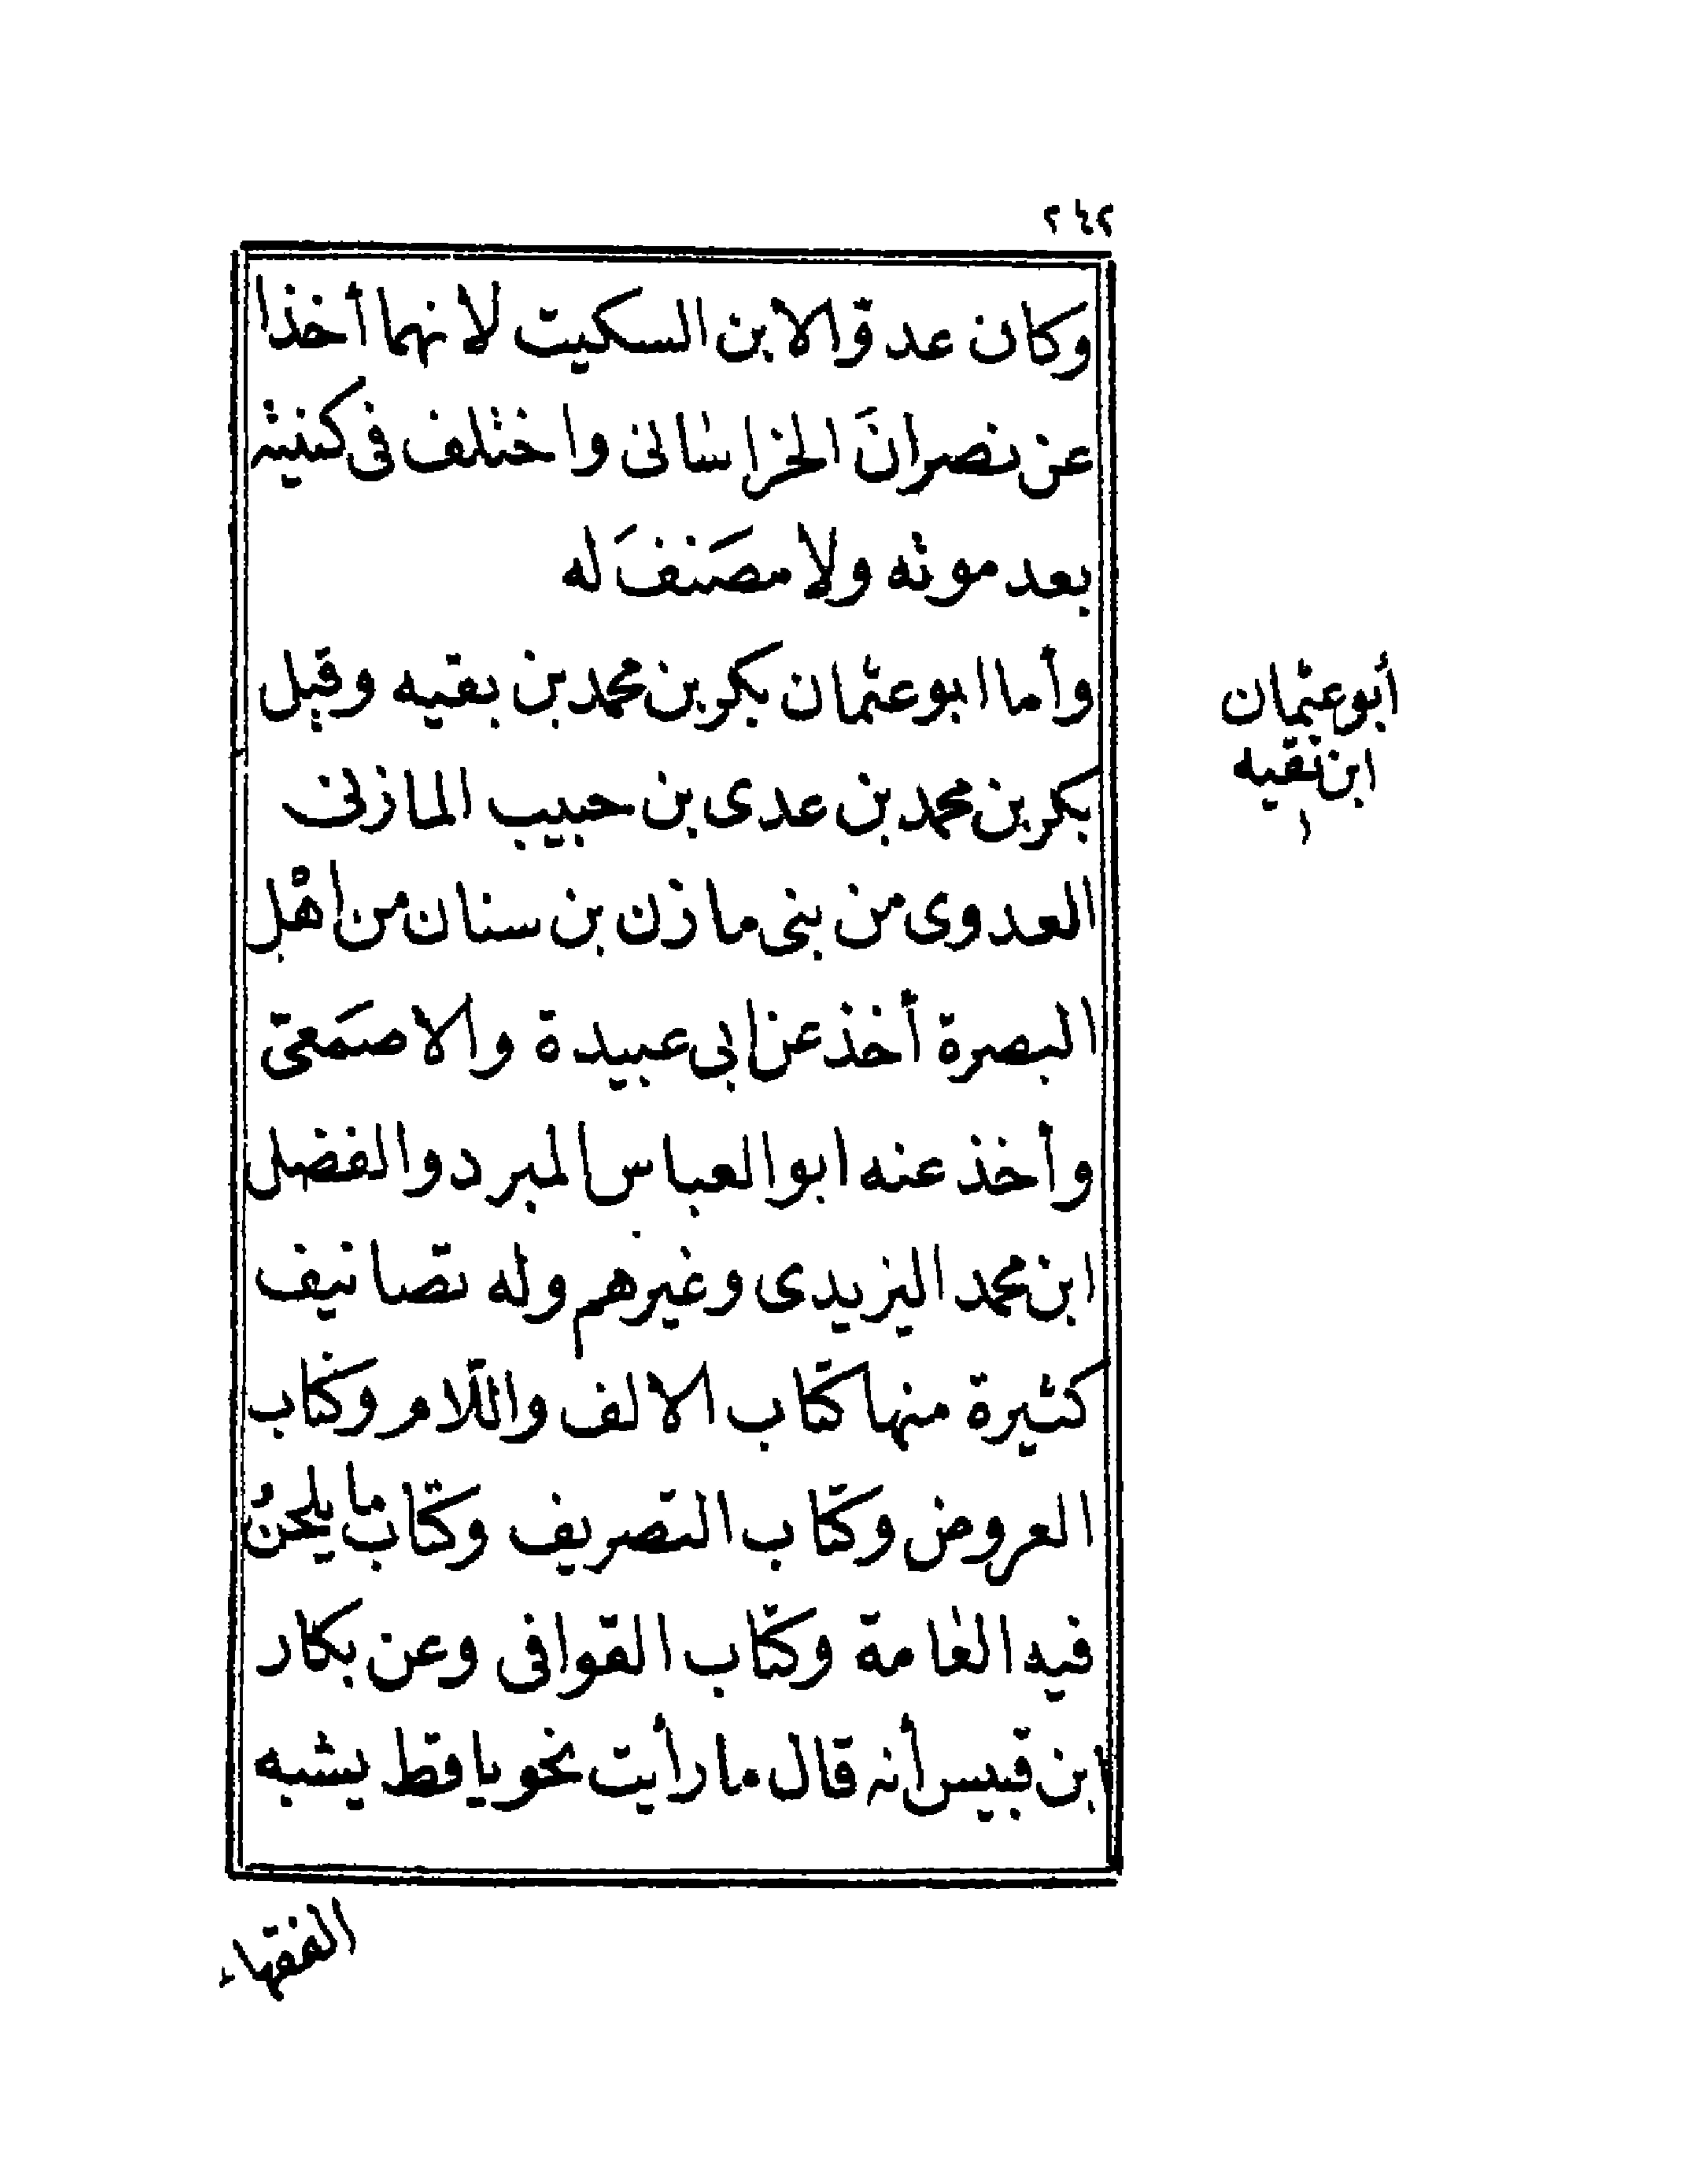 ٢٤٢
وكان عدوّالابن السكيت لانهما أخذا
عن نصرانَ الخراسانى واختلف فى كنيته
بعد موته ولا مصَنفَ له
وأما ابو عثمان بكر بن محمد بن بقيه وقيل
بكر بن محمد بن عدى بن حبيب المازنى
العدوى من بنى مازن بن سنان من أهْل
البصرة أخذ عن ابى عبيدة والاصمَعىّ
وأخذ عنه ابو العباس المبرد والفضل
ابن محمد اليزيدى وغيرهم وله تصانيف
كثيرة منها كتاب الالف واللام وكتاب
العروض وكتاب التصريف وكتاب ما يلحنُ
فيه العامة وكتاب القوافى وعن بكار
ابن قبيس أنه قال ما رأيت نحويا قط يشبه
الفقهاء
أبو عثمان
ابن تقيه
١